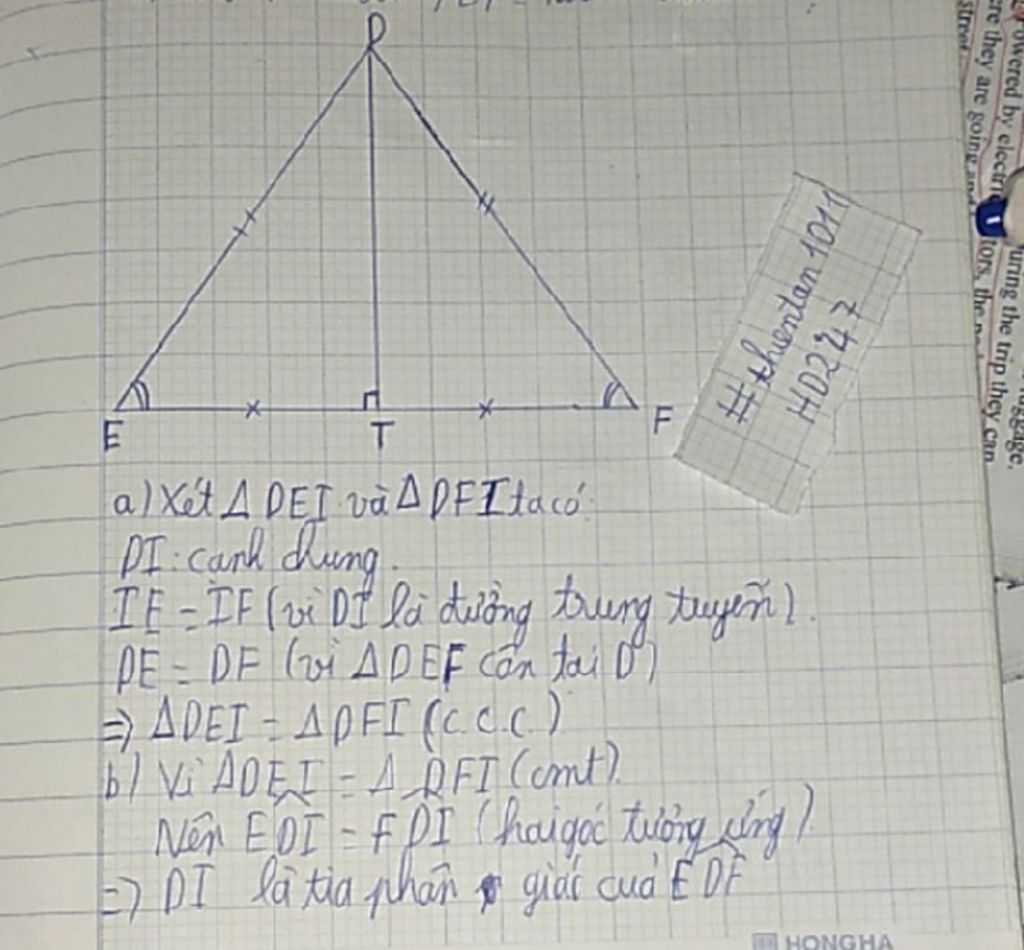 D
E
T
F
#thientan1011
HD247
a) Xét Δ DEI và Δ DFI ta có:
DI: cạnh chung.
IE = IF (vì DI là đường trung tuyến).
DE = DF (vì ΔDEF cân tại D)
=> ΔDEI = ΔDFI (c.c.c)
b) Vì ΔDEI = Δ DFI (cmt).
Nên EDI = FDI (hai góc tương ứng)
=> DI là tia phân giác của EDF
HONGHA
owered by electri
ere they are going and
street
uring the trip they can
tors, the
luggage.